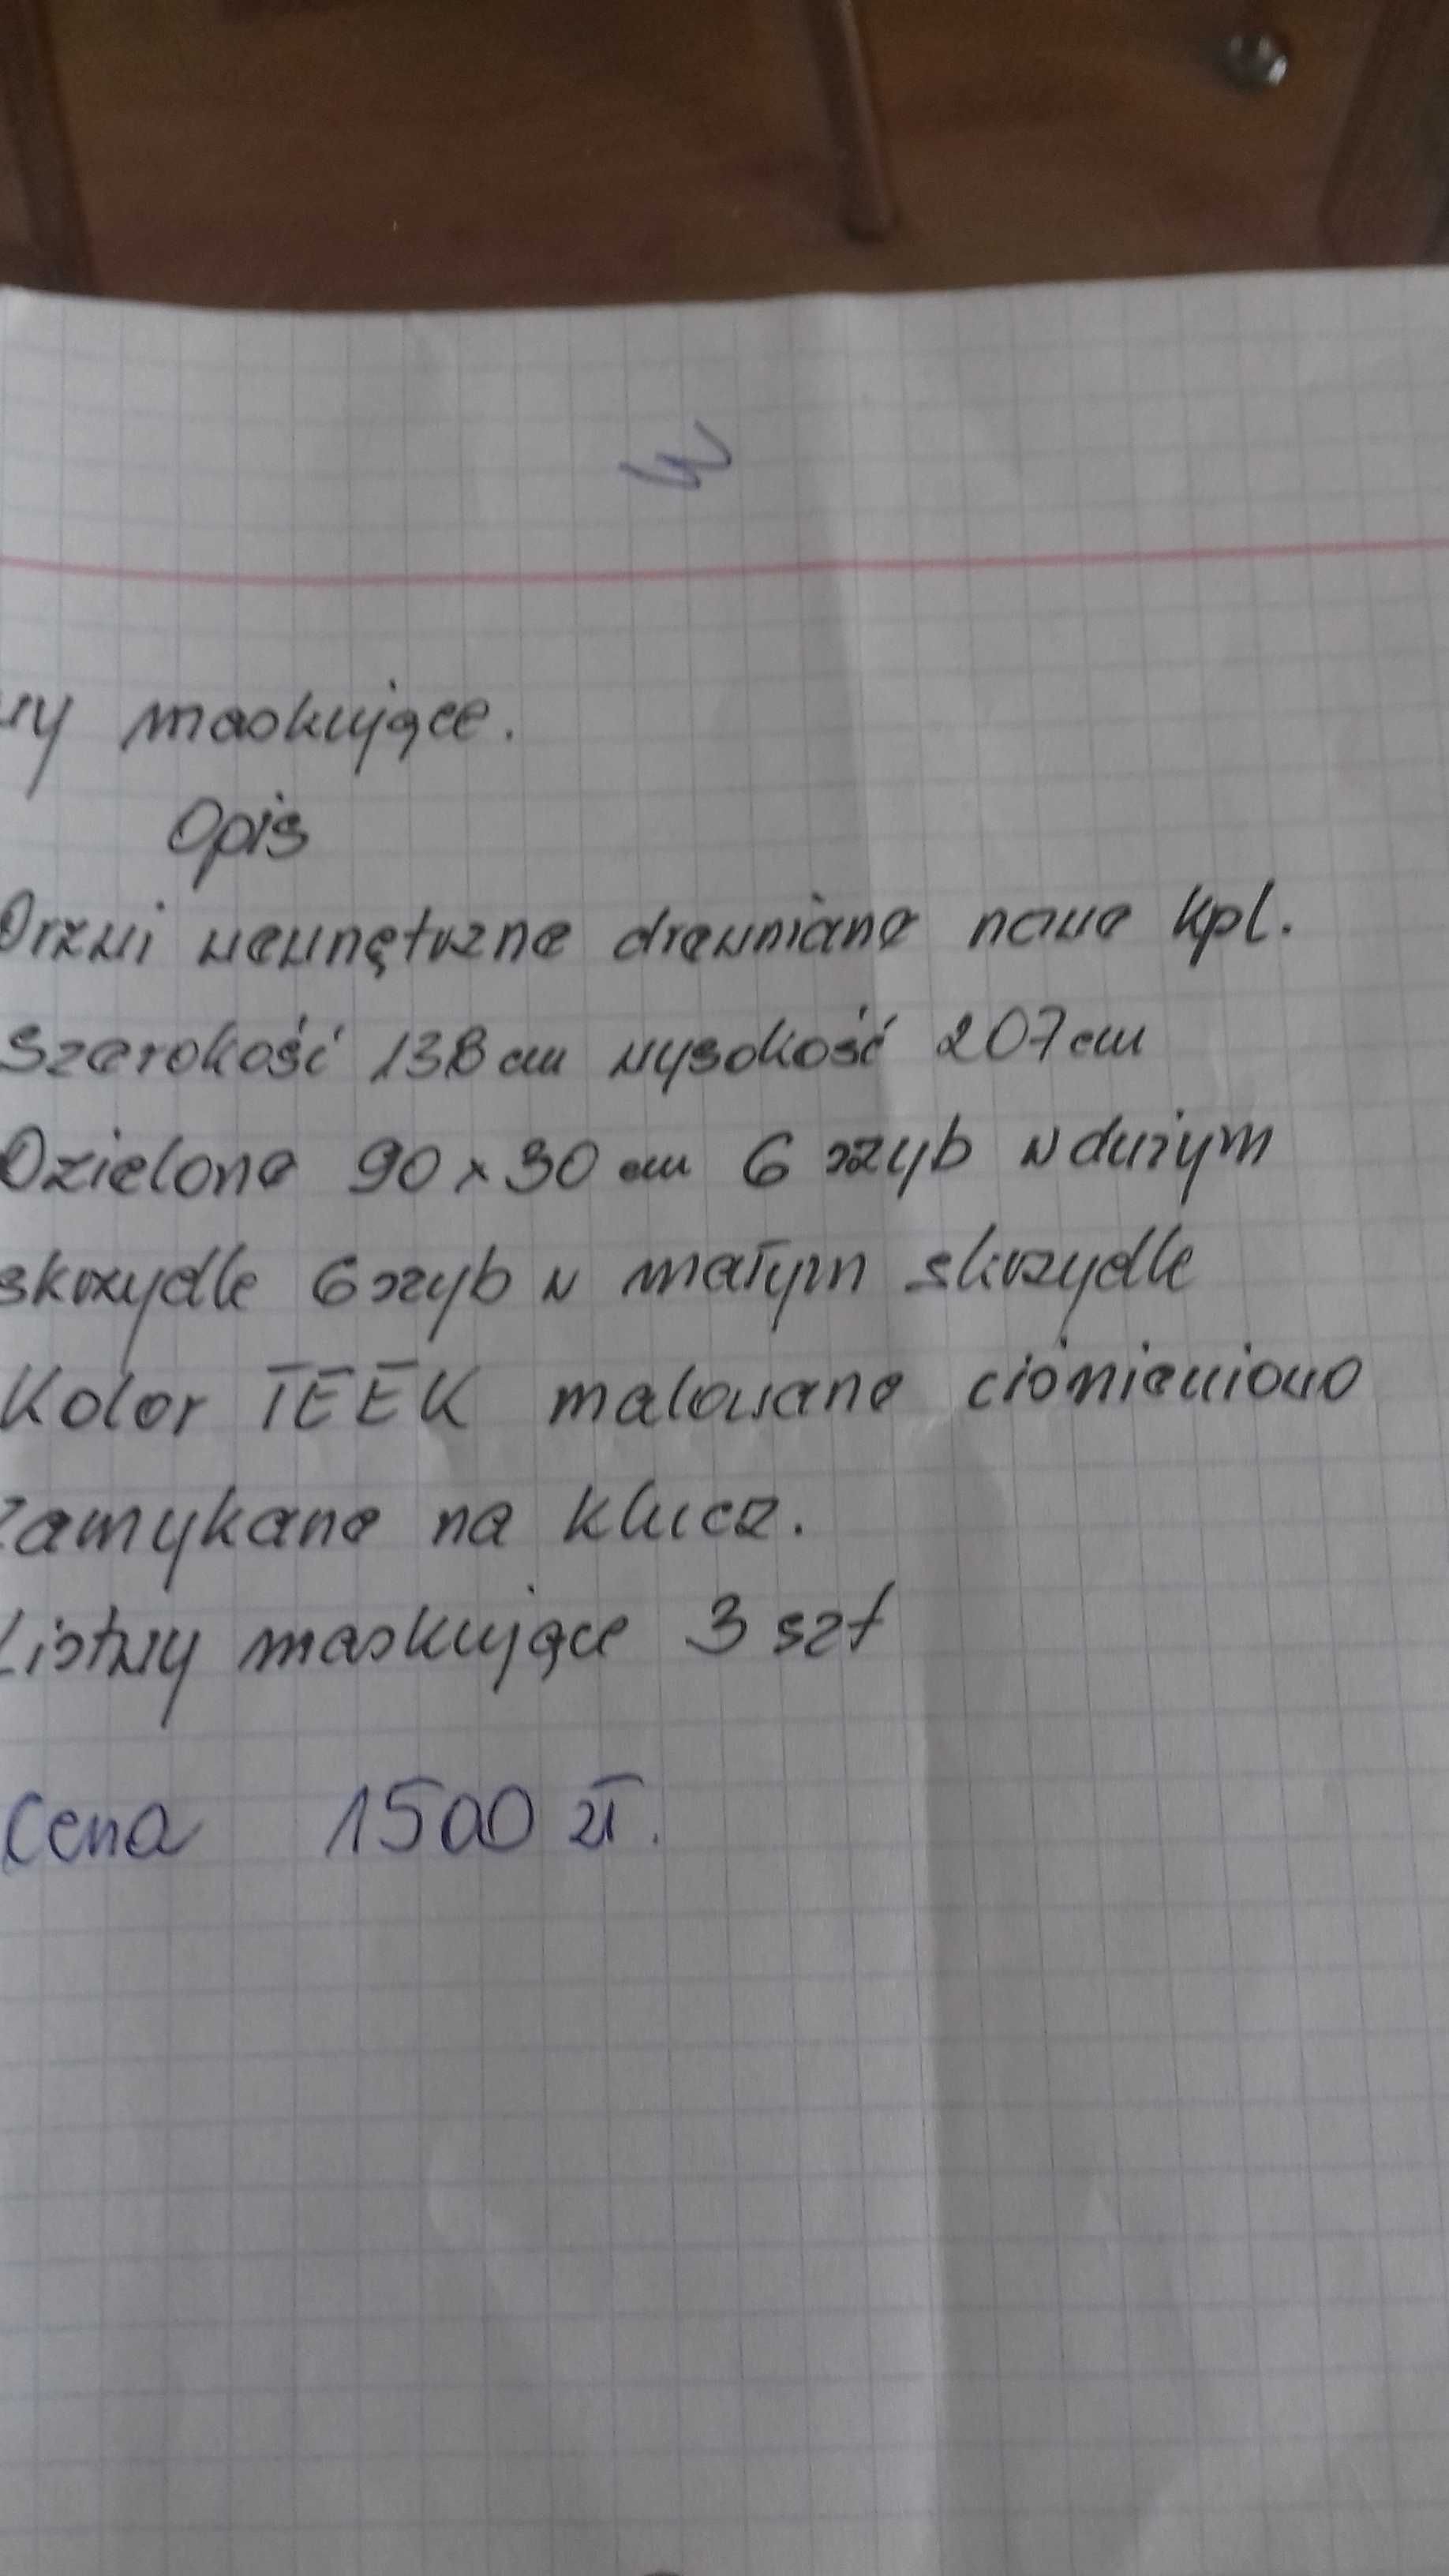 wy maskujące.
Opis
Drzwi wewnętrzne drewniane nowe kpl.
Szerokość 138 cm wysokość 207 cm
Dzielone 90 x 30 cm 6 szyb w dużym
skrzydle 6 szyb w małym skrzydle
Kolor TEEK malowane ciśnieniowo
zamykane na klucz.
Listwy maskujące 3 szt
Cena 1500 zł.